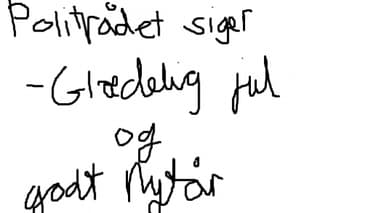 Politrådet siger
- Glædelig jul
og
godt Nytår